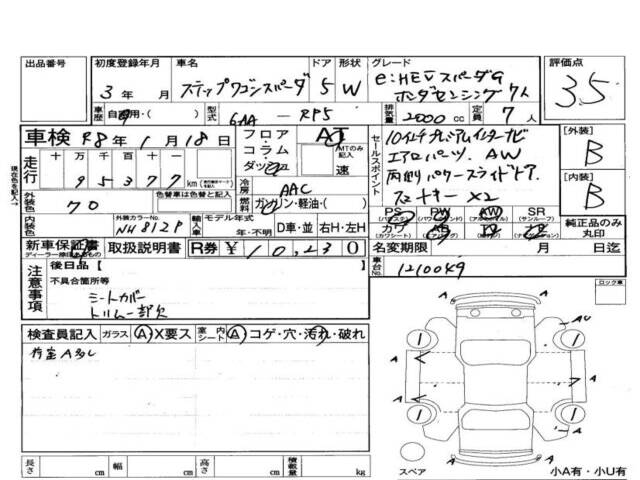 出品番号 初度登録年月 車名 ドア 形状 グレード 評価点
3年 月 ステップワゴンスパーダ 5 W e:HEVスパーダG ホンダセンシング 7人 3.5
車歴 自家用・( ) 型式 6AA-RP5 排気量 2000cc 定員 7人
車検 R8年1月18日 フロア コラム ダッシュ AT MTのみ記入 速
走行 十万 万 千 百 十 一
95377 km
現在色を記入→
外装色 70 色替車は色替元色 冷房 AAC
燃料 ガソリン・軽油・( )
内装色 外装カラーNo. NH812P 輸入車 モデル年式 年・不明 D車・並 右H・左H
セールスポイント
10インチプレミアムインターナビ
エアロパーツ、AW
両側パワースライドドア
スマートキー×2
[外装] B
[内装] B
PS PW AW SR (サンルーフ)
カワ (カワシート)
純正品のみ丸印
新車保証書 取扱説明書 R券 ¥10,230
名変期限 月 日迄
車台No. 1210049
注意事項
後日品【
不具合箇所等
シートカバー
トリム一部欠
ロック車
検査員記入 ガラス A X要ス 室内シート A コゲ・穴・汚れ・破れ
荷室A多し
A AU
A A
A A
1 1
1 1
スペア
小A有・小U有
長さ cm 幅 cm 高さ cm 積載量 kg